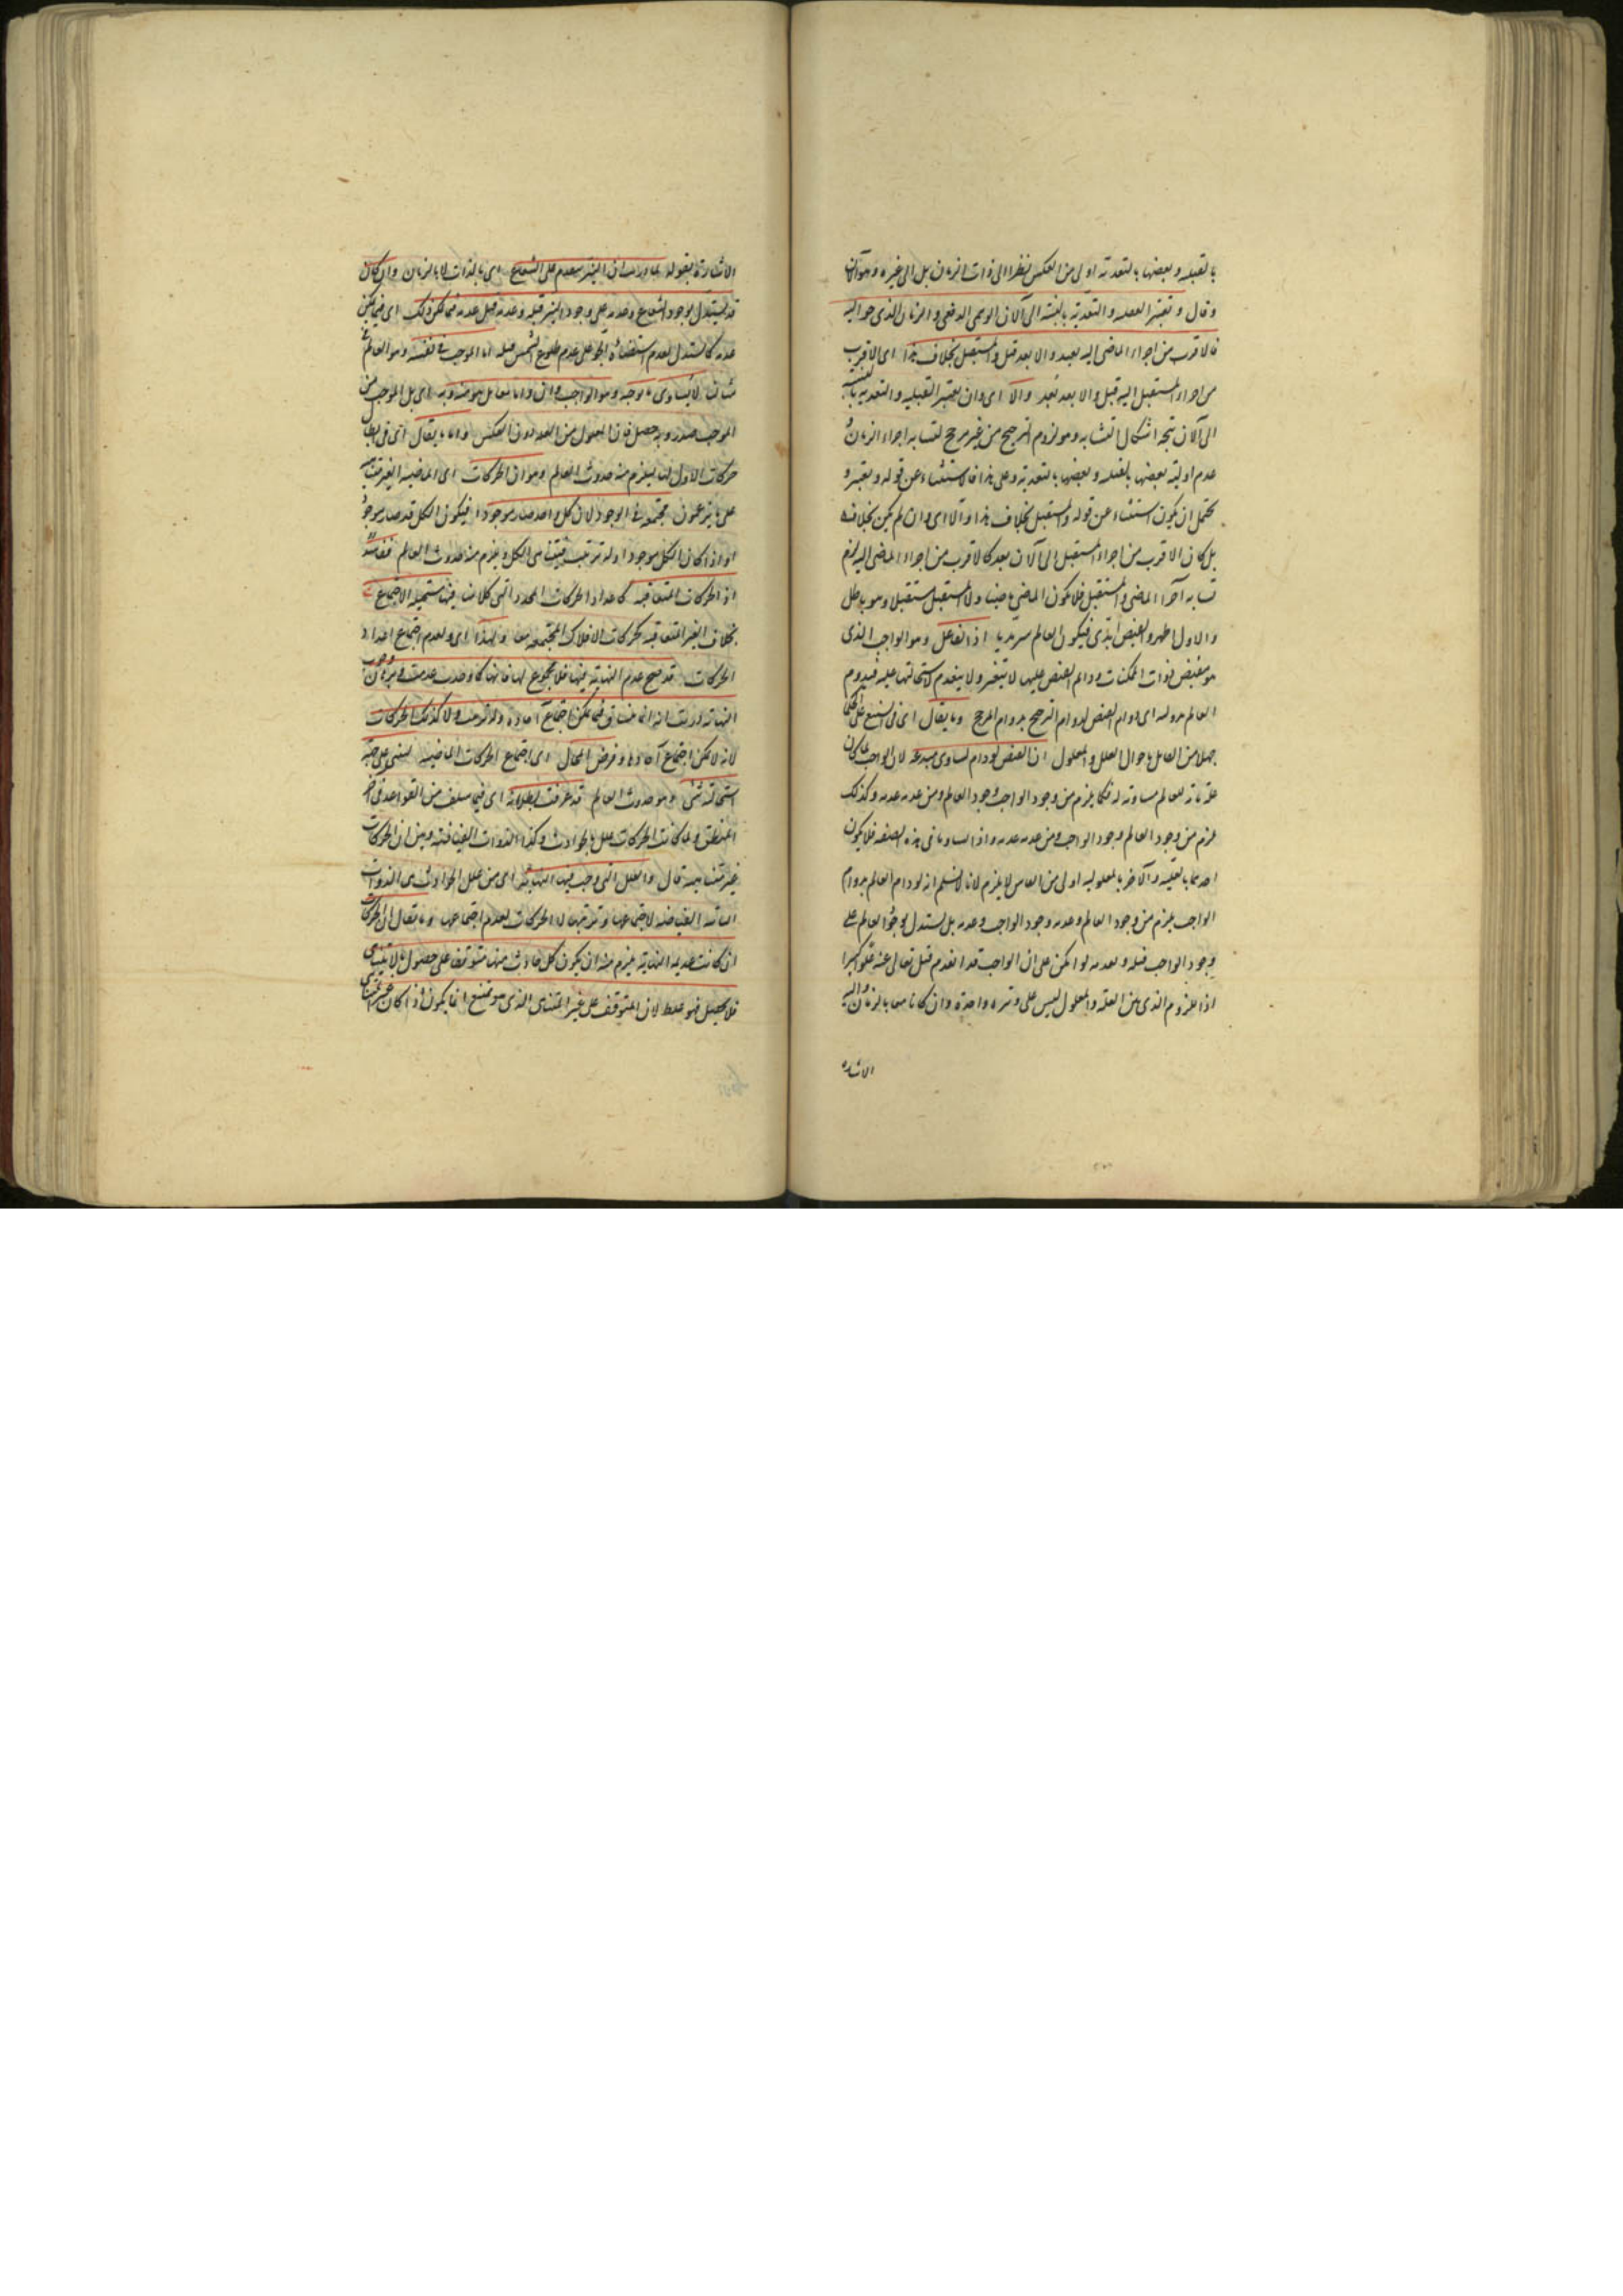 بالقبلية و بعضها بالبعدية اولى من العكس نظرا الى ذات الزمان بل الى غيره و هو الآن
و قال و تعتبر القبلية و البعدية بالنسبة الى الآن الوهمى الدفعى و الزمان الذى حواليه
فالاقرب من اجزاء الماضى اليه بعد و الابعد قبل و المستقبل بخلاف هذا اى الاقرب
من اجزاء المستقبل اليه قبل و الابعد بعد و الا اى و ان لم تعتبر القبلية و البعدية بالنسبة
الى الآن يتجه اشكال التشابه و هو لزوم الترجيح من غير مرجح لتشابه اجزاء الزمان و
عدم اولية بعضها بالقبلية و بعضها بالبعدية و على هذا فالاستثناء عن قوله و تعتبر و
يحتمل ان يكون استثناء عن قوله و المستقبل بخلاف هذا و الا اى و ان لم يكن بخلافه
بل كان الاقرب من اجزاء المستقبل الى الآن بعد كالاقرب من اجزاء الماضى اليه لزم
تشابه اجزاء الماضى و المستقبل فلا يكون الماضى ماضيا و لا المستقبل مستقبلا و هو باطل
و الاول اظهر و الفيض ابدى فيكون العالم سرمديا اذ الفاعل و هو الواجب الذى
هو مفيض ذوات الممكنات و دائم الفيض عليها لا يتغير و لا ينعدم لاستحالتهما عليه فيدوم
العالم بدوامه اى دوام الفيض لدوام الترجيح بدوام المرجح و ما يقال اى فى التشنيع على الحكماء
جهلا من القائل باحوال العلل و المعلول ان الفيض لو دام لساوى مبدعه لان الواجب لما كان
علة تامة للعالم مساوية له فكما يلزم من وجود الواجب وجود العالم و من عدمه عدمه و كذلك
يلزم من وجود العالم وجود الواجب و من عدمه عدمه و اذا تساويا فى هذه الصفة فلا يكون
احدهما بالعلية و الآخر بالمعلولية اولى من العكس لا يلزم لانا لا نسلم انه لو دام العالم بدوام
الواجب يلزم من وجود العالم و عدمه وجود الواجب و عدمه بل يستدل بوجود العالم على
وجود الواجب قبله و بعدمه لو امكن على ان الواجب قد انعدم قبل تعالى عنه علوا كبيرا
اذ اللزوم الذى بين العلة و المعلول ليس على وتيرة واحدة و ان كانا معا بالزمان و اليه
الاشارة
الاشارة بقوله لما دريت ان النير يتقدم على الشعاع اى بالذات لا بالزمان و ان كان
قد يستدل بوجود الشعاع و عدمه على وجود النير قبله و عدمه قبل عدمه فيما يمكن ذلك اى فيما يمكن
عدمه كما يستدل بعدم استضاءة الجو على عدم طلوع الشمس قبله اما الموجب فى نفسه و هو العالم
لا يساوى ما يوجبه و هو الواجب و ان داما معا بل هو منه و به اى بل الموجب من
الموجب صدر و به حصل فان المعلول من العلة دون العكس و اما ما يقال اى فى ابطال
حركات لا اول لها ليلزم منه حدوث العالم و هو ان الحركات اى الماضية الغير المتناهية
على ما يزعمون مجتمعة فى الوجود لان كل واحد صار موجودا فيكون الكل قد صار موجودا
او اذا كان الكل موجودا و له ترتيب فيتناهى الكل و يلزم منه حدوث العالم ففاسد
اذ الحركات المتعاقبة كاعداد الحركات المحدد التى كلامنا فيها مستحيلة الاجتماع
بخلاف الغير المتعاقبة كحركات الافلاك المجتمعة معا و لهذا اى و لعدم اجتماع اعداد
الحركات قد صح عدم النهاية فيها فلا مجموع لها
لانه لا يمكن اجتماع آحادها و فرض المحال اى اجتماع الحركات الماضية ليبتنى على جهة
استحالته شئ و هو حدوث العالم قد عرفت بطلانه اى فيما سلف من القواعد فى آخر
المنطق و لما كانت الحركات علل الحوادث و كذا الذوات الفياضة و بين ان الحركات
غير متناهية قال و العلل التى وجب فيها النهاية اى من علل الحوادث هى الذوات
الثابتة الفياضة لاجتماعها و ترتبها لا الحركات لعدم اجتماعها و ما يقال ان الحركات
ان كانت عديمة النهاية يلزم منه ان يكون كل حادث منها متوقف على حصول ما لا يتناهى
فلا يحصل فهو غلط لان المتوقف على غير المتناهى الذى هو ممتنع انما يكون اذا كان غير المتناهى